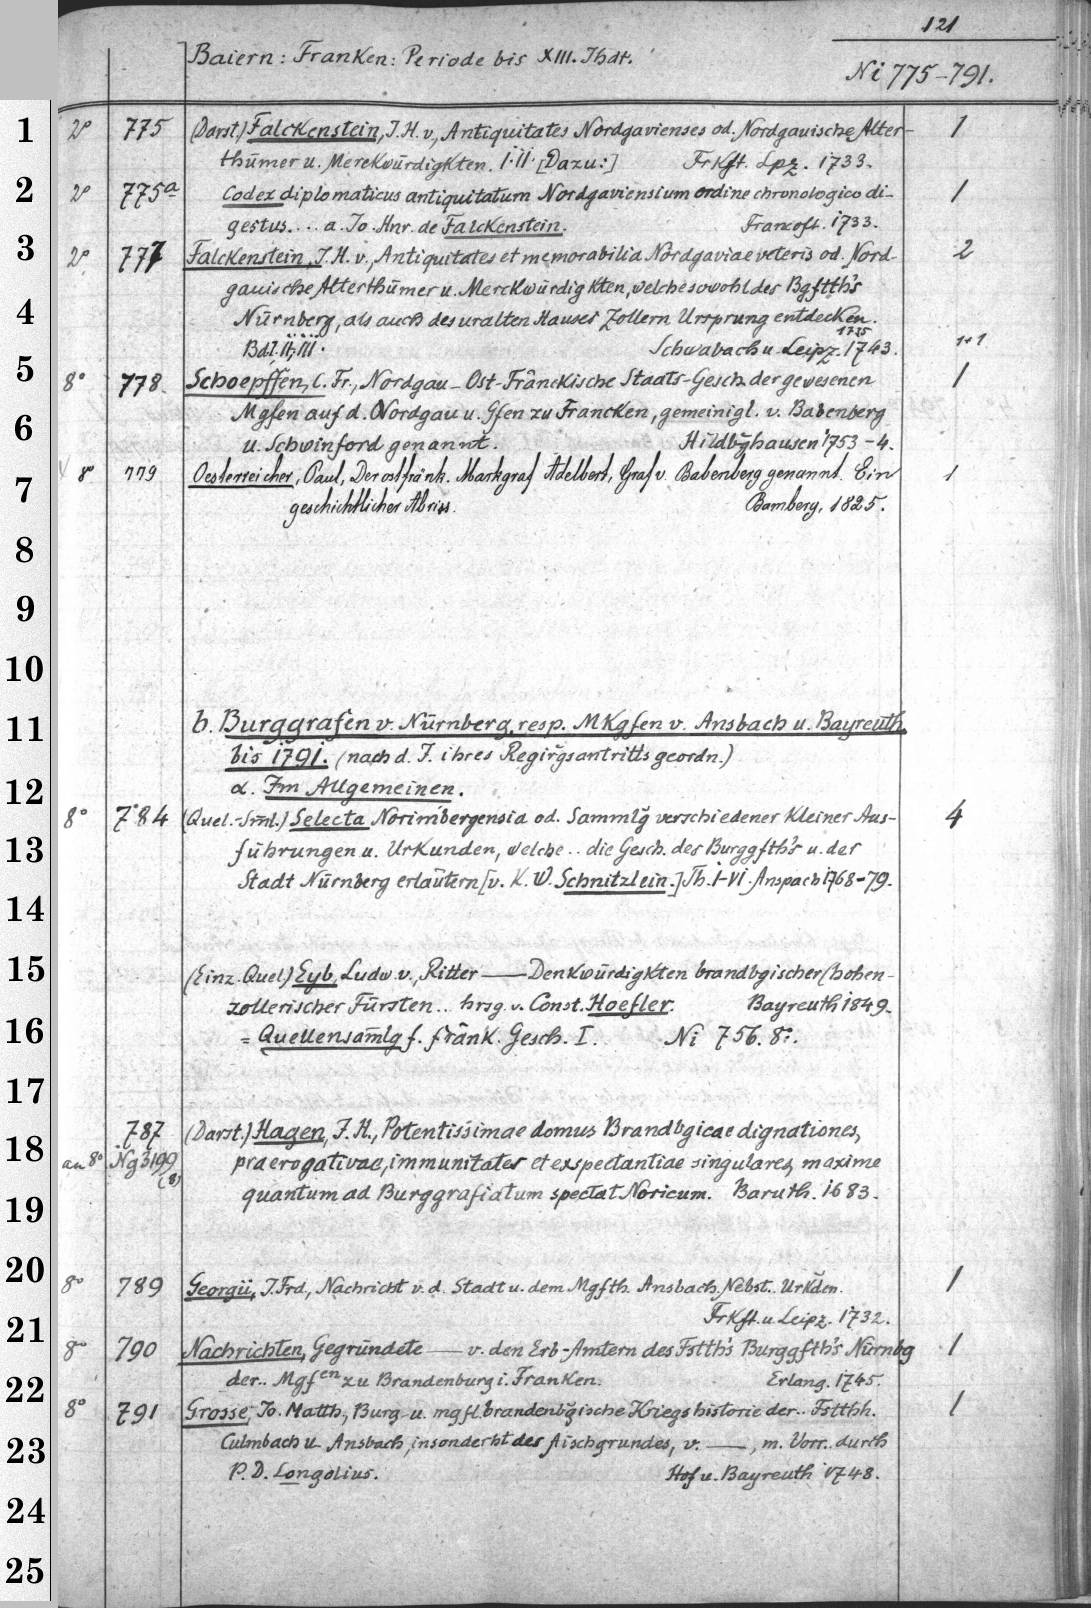 121
Baiern: Franken: Periode bis XIII. Jhdt.
Ni 775-791.
1
2° 775 (Darst.) Falckenstein, J. H. v., Antiquitates Nordgavienses od. Nordgauische Alter- 1
thümer u. Merckwürdigkten. I.II. [Dazu:] Frkft. Lpz. 1733.
2
2° 775a Codex diplomaticus antiquitatum Nordgaviensium ordine chronologico di- 1
gestus.... a Jo. Hnr. de Falckenstein. Francoft. 1733.
3
2° 777 Falckenstein, J. H. v., Antiquitates et memorabilia Nordgaviae veteris od. Nord- 2
gauische Alterthümer u. Merckwürdigkten, welche sowohl des Bgftth's
4
Nürnberg, als auch des uralten Hauses Zollern Ursprung entdecken.
Bd I. II, III. Schwabach u. Leipz. 1735 1743. 1+1
5
8° 778. Schoepffen, C. Fr., Nordgau-Ost-Fränckische Staats-Gesch. der gewesenen 1
6
Mgfen auf d. Nordgau u. Gfen zu Francken, gemeinigl. v. Babenberg
u. Schwinford genannt. Hildbghausen 1753-4.
7
8° 779 Oesterreicher, Paul, Der ostfränk. Markgraf Adelbert, Graf v. Babenberg genannt. Ein 1
geschichtlicher Abriss. Bamberg, 1825.
8
9
10
11
b. Burggrafen v. Nürnberg, resp. MKgfen v. Ansbach u. Bayreuth
bis 1791. (nach d. J. ihres Regirgsantritts geordn.)
12
α. Im Allgemeinen.
8° 784 (Quel.-Sml.) Selecta Norimbergensia od. Sammlg verschiedener Kleiner Aus- 4
13
führungen u. Urkunden, welche .. die Gesch. des Burggfth's u. der
Stadt Nürnberg erläutern [v. K. W. Schnitzlein.] Th. I-VI. Anspach 1768-79.
14
15
(Einz. Quel) Eyb, Ludw. v., Ritter — Denkwürdigkten brandbgischer (hohen-
zollerischer Fürsten .. hrsg. v. Const. Hoefler. Bayreuth 1849.
16
= Quellensamlg f. fränk. Gesch. I. Ni 756. 8°.
17
787 (Darst.) Hagen, J. H., Potentissimae domus Brandbgicae dignationes,
18
an 8° Ng 3199 (8) praerogativae, immunitates et exspectantiae singulares, maxime
quantum ad Burggrafiatum spectat Noricum. Baruth. 1683.
19
20
8° 789 Georgii, J. Frd, Nachricht v. d. Stadt u. dem Mgfth. Ansbach. Nebst.. Urkden. 1
Frkft. u. Leipz. 1732.
21
8° 790 Nachrichten, Gegründete — v. den Erb-Amtern des Fstth's Burggfth's Nürnbg 1
der.. Mgfen zu Brandenburg i. Franken. Erlang. 1745.
22
8° 791 Grosse, Jo. Matth., Burg- u. mgfl. brandenbgische Kriegshistorie der.. Fstthh. 1
23
Culmbach u. Ansbach, insonderht des Aischgrundes, v. —, m. Vorr.. durch
P. D. Longolius. Hof u. Bayreuth 1748.
24
25